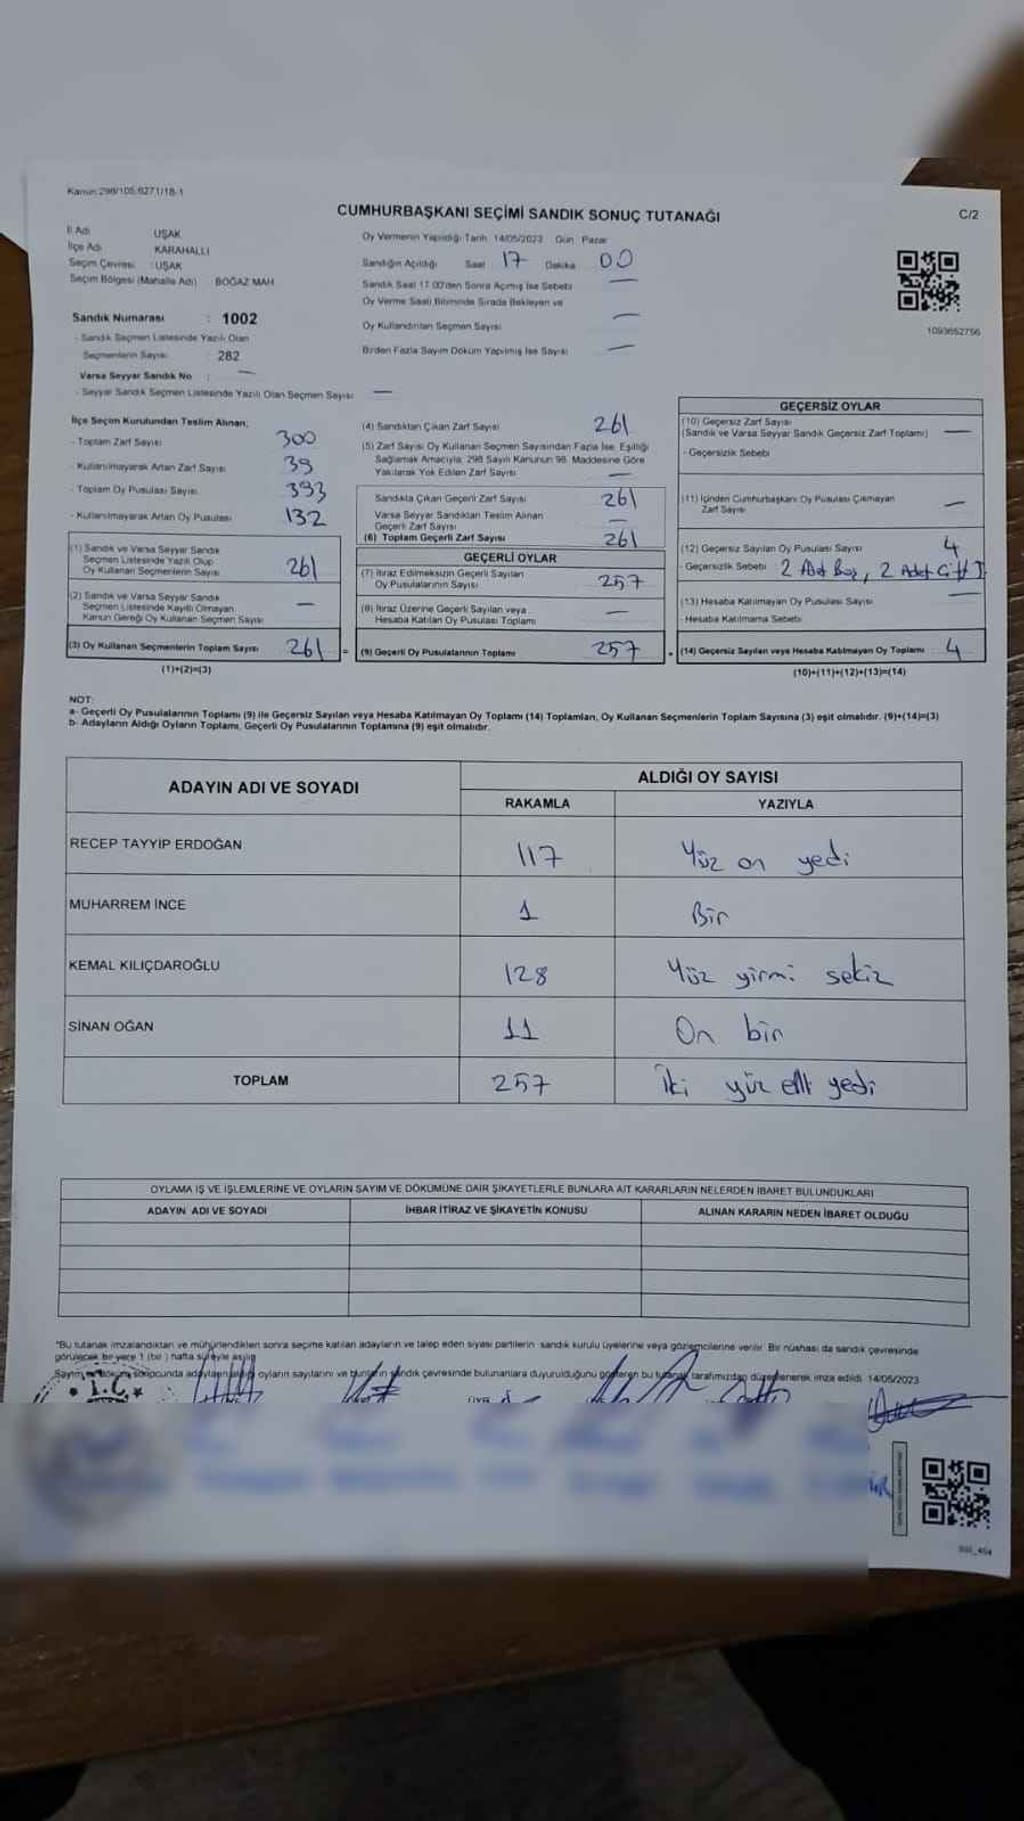 Kanun:298/105,6271/18-1
CUMHURBAŞKANI SEÇİMİ SANDIK SONUÇ TUTANAĞI
C/2
İl Adı UŞAK
İlçe Adı KARAHALLI
Seçim Çevresi : UŞAK
Seçim Bölgesi (Mahalle Adı) BOĞAZ MAH
Oy Vermenin Yapıldığı Tarih 14/05/2023 Gün Pazar
Sandığın Açıldığı Saat 17 Dakika 00
Sandık Saat 17.00'den Sonra Açılmış İse Sebebi —
Oy Verme Saati Bitiminde Sırada Bekleyen ve
Oy Kullandırılan Seçmen Sayısı —
Birden Fazla Sayım Döküm Yapılmış İse Sayısı —
1093652756
Sandık Numarası : 1002
- Sandık Seçmen Listesinde Yazılı Olan
Seçmenlerin Sayısı : 282
Varsa Seyyar Sandık No : —
- Seyyar Sandık Seçmen Listesinde Yazılı Olan Seçmen Sayısı —
İlçe Seçim Kurulundan Teslim Alınan;
- Toplam Zarf Sayısı 300
- Kullanılmayarak Artan Zarf Sayısı 39
- Toplam Oy Pusulası Sayısı 393
- Kullanılmayarak Artan Oy Pusulası 132
(1) Sandık ve Varsa Seyyar Sandık
Seçmen Listesinde Yazılı Olup
Oy Kullanan Seçmenlerin Sayısı 261
(2) Sandık ve Varsa Seyyar Sandık
Seçmen Listesinde Kayıtlı Olmayan
Kanun Gereği Oy Kullanan Seçmen Sayısı —
(3) Oy Kullanan Seçmenlerin Toplam Sayısı 261 =
(1)+(2)=(3)
(4) Sandıktan Çıkan Zarf Sayısı 261
(5) Zarf Sayısı Oy Kullanan Seçmen Sayısından Fazla İse, Eşitliği
Sağlamak Amacıyla, 298 Sayılı Kanunun 98. Maddesine Göre
Yakılarak Yok Edilen Zarf Sayısı —
Sandıkta Çıkan Geçerli Zarf Sayısı 261
Varsa Seyyar Sandıktan Teslim Alınan
Geçerli Zarf Sayısı —
(6) Toplam Geçerli Zarf Sayısı 261
GEÇERLİ OYLAR
(7) İtiraz Edilmeksizin Geçerli Sayılan
Oy Pusulalarının Sayısı 257
(8) İtiraz Üzerine Geçerli Sayılan veya
Hesaba Katılan Oy Pusulası Toplamı —
(9) Geçerli Oy Pusulalarının Toplamı 257
GEÇERSİZ OYLAR
(10) Geçersiz Zarf Sayısı
(Sandık ve Varsa Seyyar Sandık Geçersiz Zarf Toplamı) —
- Geçersizlik Sebebi
(11) İçinden Cumhurbaşkanı Oy Pusulası Çıkmayan
Zarf Sayısı —
(12) Geçersiz Sayılan Oy Pusulası Sayısı 4
- Geçersizlik Sebebi 2 Adet Boş, 2 Adet Çift
(13) Hesaba Katılmayan Oy Pusulası Sayısı —
- Hesaba Katılmama Sebebi
(14) Geçersiz Sayılan veya Hesaba Katılmayan Oy Toplamı 4
(10)+(11)+(12)+(13)=(14)
NOT:
a- Geçerli Oy Pusulalarının Toplamı (9) ile Geçersiz Sayılan veya Hesaba Katılmayan Oy Toplamı (14) Toplamları, Oy Kullanan Seçmenlerin Toplam Sayısına (3) eşit olmalıdır. (9)+(14)=(3)
b- Adayların Aldığı Oyların Toplamı, Geçerli Oy Pusulalarının Toplamına (9) eşit olmalıdır.
ADAYIN ADI VE SOYADI
ALDIĞI OY SAYISI
RAKAMLA YAZIYLA
RECEP TAYYİP ERDOĞAN 117 Yüz on yedi
MUHARREM İNCE 1 Bir
KEMAL KILIÇDAROĞLU 128 Yüz yirmi sekiz
SİNAN OĞAN 11 On bir
TOPLAM 257 İki yüz elli yedi
OYLAMA İŞ VE İŞLEMLERİNE VE OYLARIN SAYIM VE DÖKÜMÜNE DAİR ŞİKAYETLERLE BUNLARA AİT KARARLARIN NELERDEN İBARET BULUNDUKLARI
ADAYIN ADI VE SOYADI İHBAR İTİRAZ VE ŞİKAYETİN KONUSU ALINAN KARARIN NEDEN İBARET OLDUĞU
*Bu tutanak imzalandıktan ve mühürlendikten sonra seçime katılan adayların ve talep eden siyasi partilerin sandık kurulu üyelerine veya gözlemcilerine verilir. Bir nüshası da sandık çevresinde
görülecek bir yere 1 (bir) hafta süreyle asılır.
Sayım ve döküm sonucunda adayların aldığı oyların sayılarını ve bunların sandık çevresinde bulunanlara duyurulduğunu gösteren bu tutanak tarafımızdan düzenlenerek imza edildi. 14/05/2023
T.C.
ÜYE